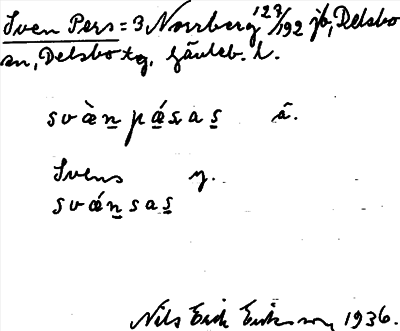 Sven Pers = 3 Norrberg 1 23/192 jb, Delsbo
sn, Delsbo tg, Gävleb. l.
svὰn̲ pá̲sas̲ ä.
Svens y.
svǽn̲sas̲
Nils Erik Eriksson 1936.